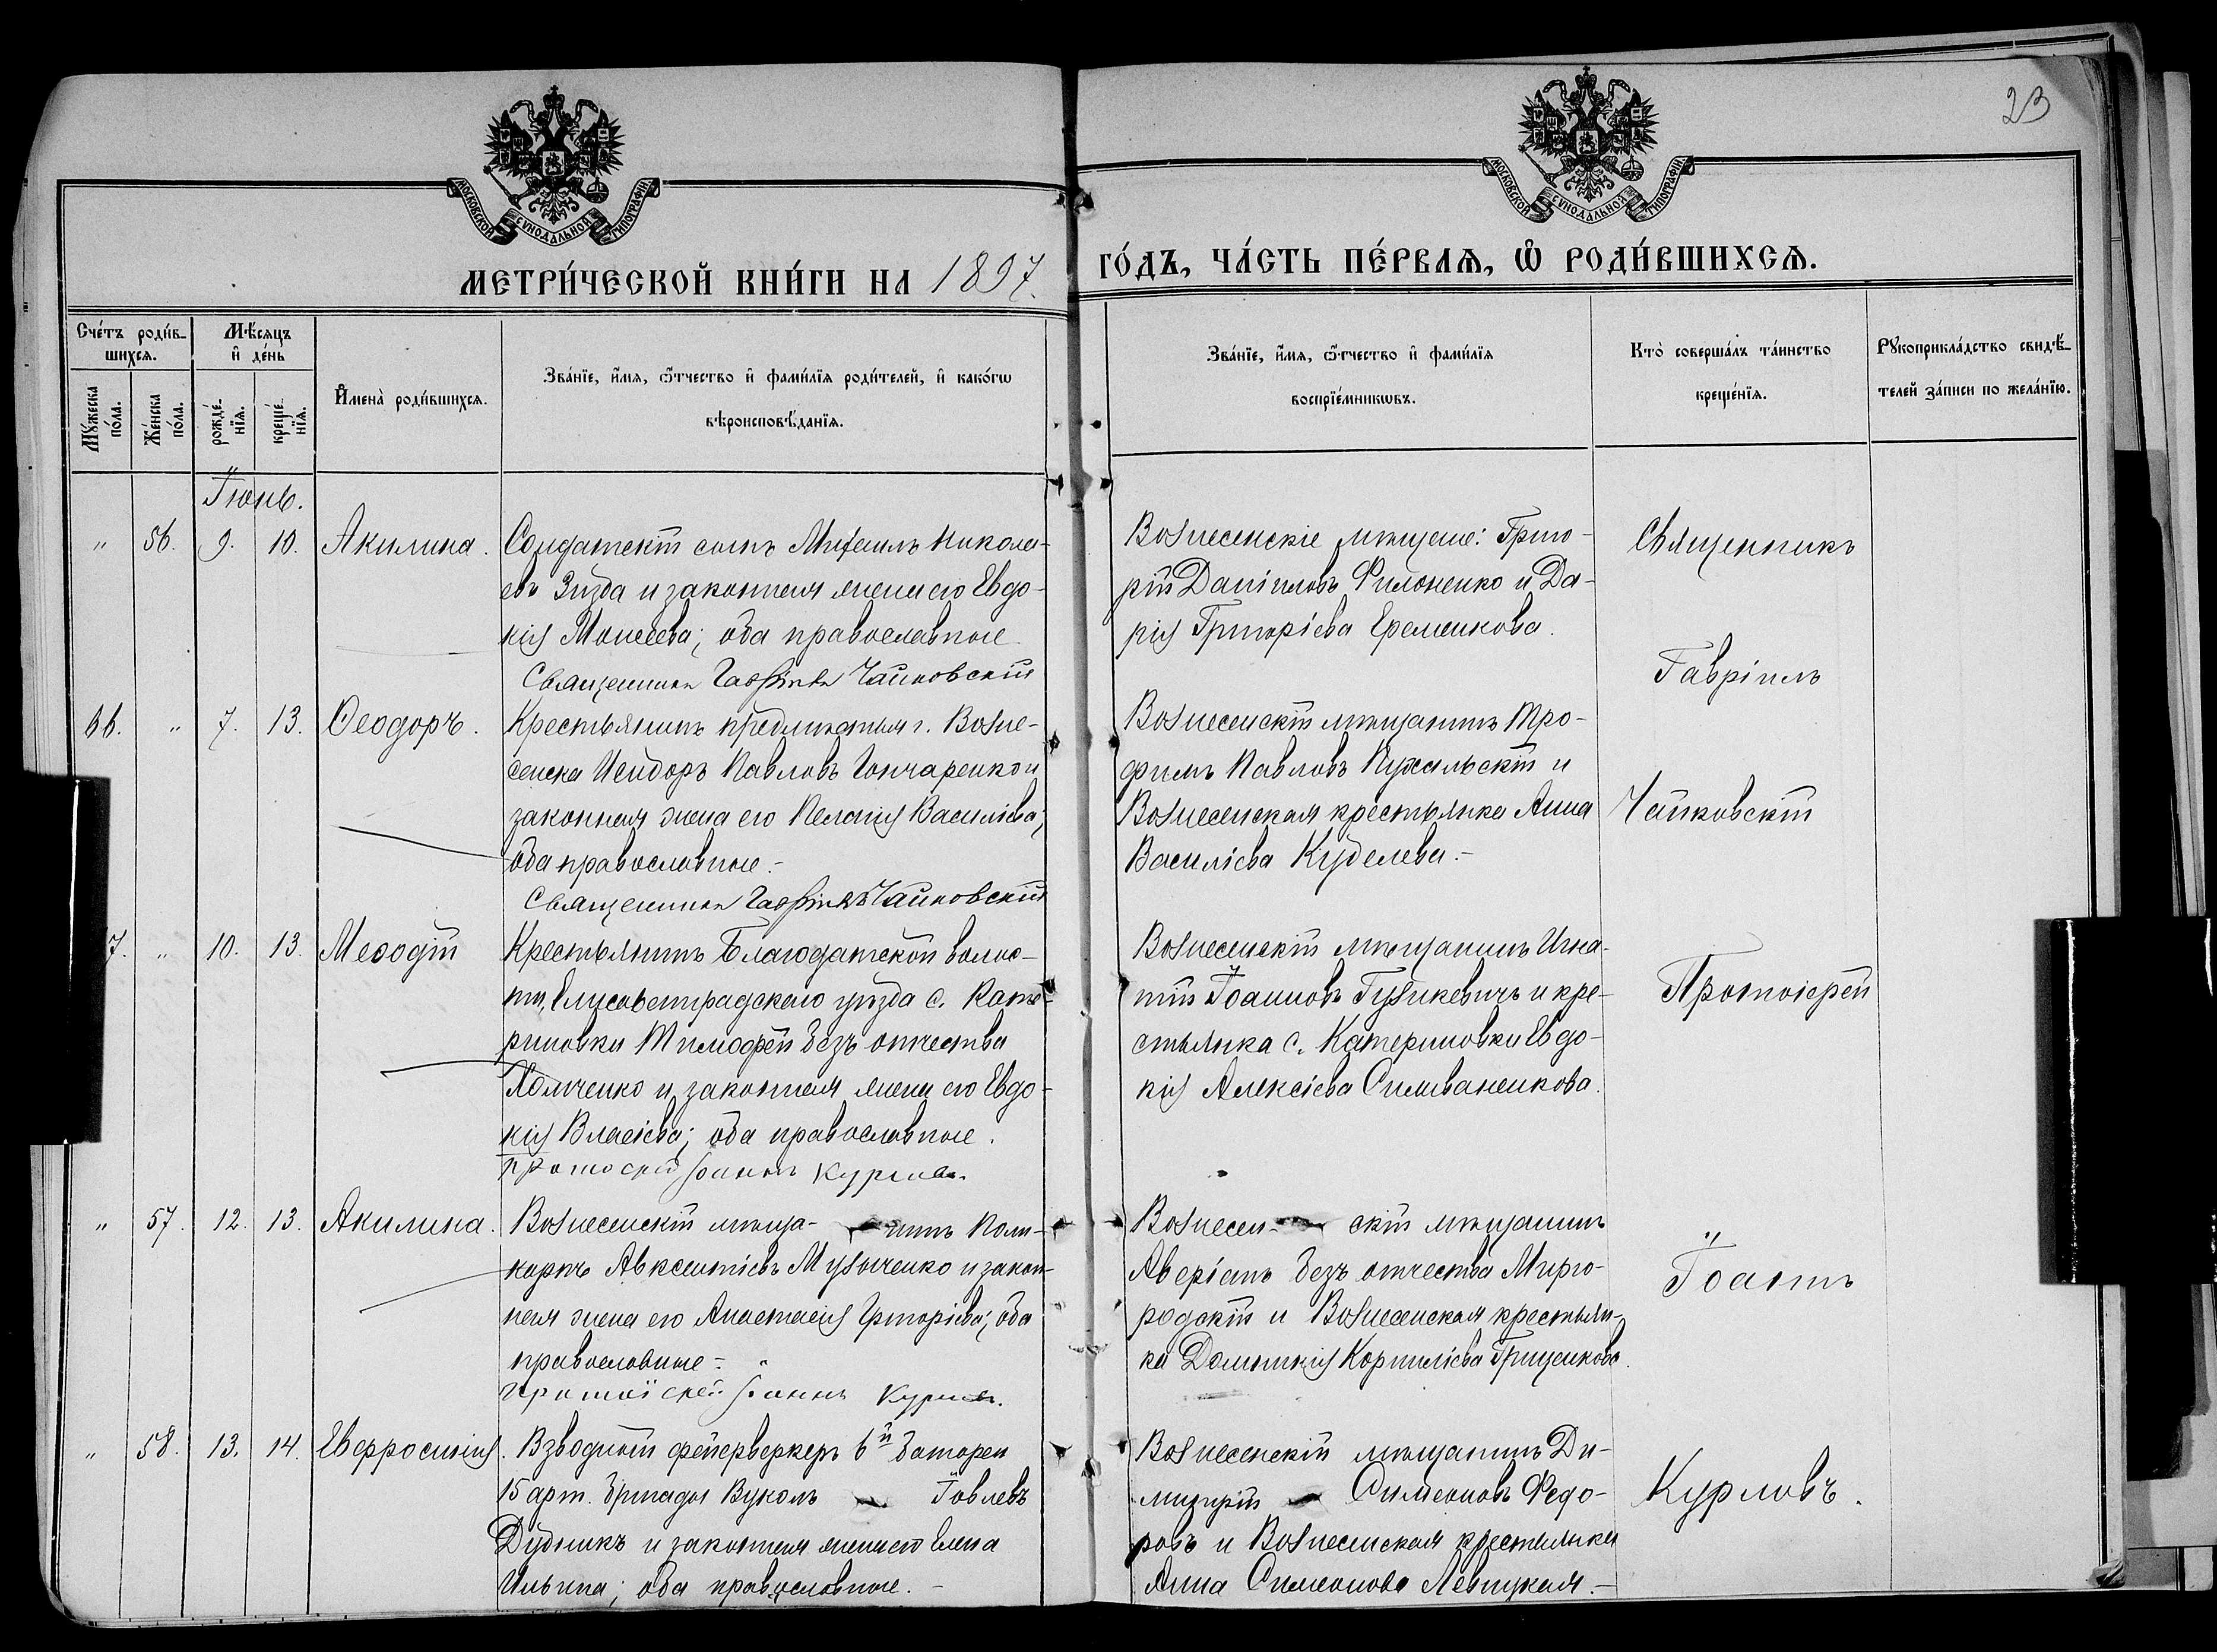 23
МОСКОВСКОЙ СѴНОДАЛЬНОЙ ТИПОГРАФІИ
МОСКОВСКОЙ СѴНОДАЛЬНОЙ ТИПОГРАФІИ
МЕТРИ́ЧЕСКОЙ КНИ́ГИ НА 1897.
ГО́ДЪ, ЧА́СТЬ ПЕ́РВАѦ, Ѡ҆ РОДИ́ВШИХСѦ.
Сче́тъ роди́в-
шихсѧ.
Мꙋ́жеска по́ла.
Же́нска по́ла.
Мѣ́сѧцъ
и҆ де́нь
рожде́-нїѧ.
креще́-нїѧ.
И҆мена̀ роди́вшихсѧ.
Зва́нїе, и҆́мѧ, ѻ҆́тчество и҆ фами́лїѧ роди́телей, и҆ како́гѡ
вѣроисповѣ́данїѧ.
Зва́нїе, и҆́мѧ, ѻ҆́тчество и҆ фами́лїѧ
воспрїе́мникѡвъ.
Кто̀ соверша́лъ та́инство
креще́нїѧ.
Рꙋкоприкла́дство свидѣ́-
телей за́писи по жела́нїю.
Іюнь.
" 56. 9. 10. Акилина.
Солдатскій сынъ Михаилъ Никола-
евъ Зизда и законная жена его Евдо-
кія Моисеева; оба православные
Священникъ Гавріилъ Чайковскій
Вознесенскіе мѣщане: Григо-
рій Даніиловъ Филоненко и Да-
рія Григоріева Еременкова.
Священникъ
Гавріилъ
Чайковскій
66. " 7. 13. Ѳеодоръ.
Крестьянинъ предмѣстья г. Возне-
сенска Исидоръ Павловъ Гончаренко и
законная жена его Пелагія Василіева;
оба православные.-
Священникъ Гавріилъ Чайковскій
Вознесенскій мѣщанинъ Тро-
фимъ Павловъ и
Вознесенская крестьянка Анна
Василіева Куделева.-
7. " 10. 13. Меѳодій
Крестьянинъ Благодатской волос-
ти, Елисаветградскаго уѣзда с. Кате-
риновки Тимоѳей безъ отчества
Хомченко и законная жена его Евдо-
кія Власіева; оба православные.
Протоіерей Іоаннъ Курловъ.
Вознесенскій мѣщанинъ Игна-
тій Іоанновъ Гузикевичъ и кре-
стьянка с. Катериновки Евдо-
кія Алексіева Силиваненкова.
Протоіерей
Іоаннъ
Курловъ.
" 57. 12. 13. Акилина.
Вознесенскій мѣща- нинъ Поли-
карпъ Авксентіевъ Музыченко и закон-
ная жена его Анастасія Григоріева; оба
православные.-
Протоіерей Іоаннъ Курловъ.
Вознесен- скій мѣщанинъ
Аверіанъ безъ отчества Мирго-
родскій и Вознесенская крестьян-
ка Домникія Корниліева Гриценкова.
" 58. 13. 14. Евфросинія.
Взводный фейерверкеръ 6й батареи
15 арт. бригады Вуколъ Іовлевъ
Дудникъ и законная жена его Елена
Ильина; оба православные.-
Вознесенскій мѣщанинъ Ди-
митрій Симеоновъ Федо-
ровъ и Вознесенская крестьянка
Анна Симеонова Левицкая.-